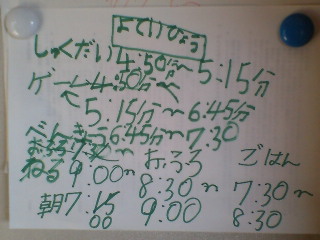 よていひょう
しゅくだい4:50分〜5:15分
ゲーム4:50分〜
5:15分〜6:45分
べんきょう6:45分〜7:30
おふろ ごはん
ねる9:00〜 8:30〜 7:30〜
朝7:15 9:00 8:30
00